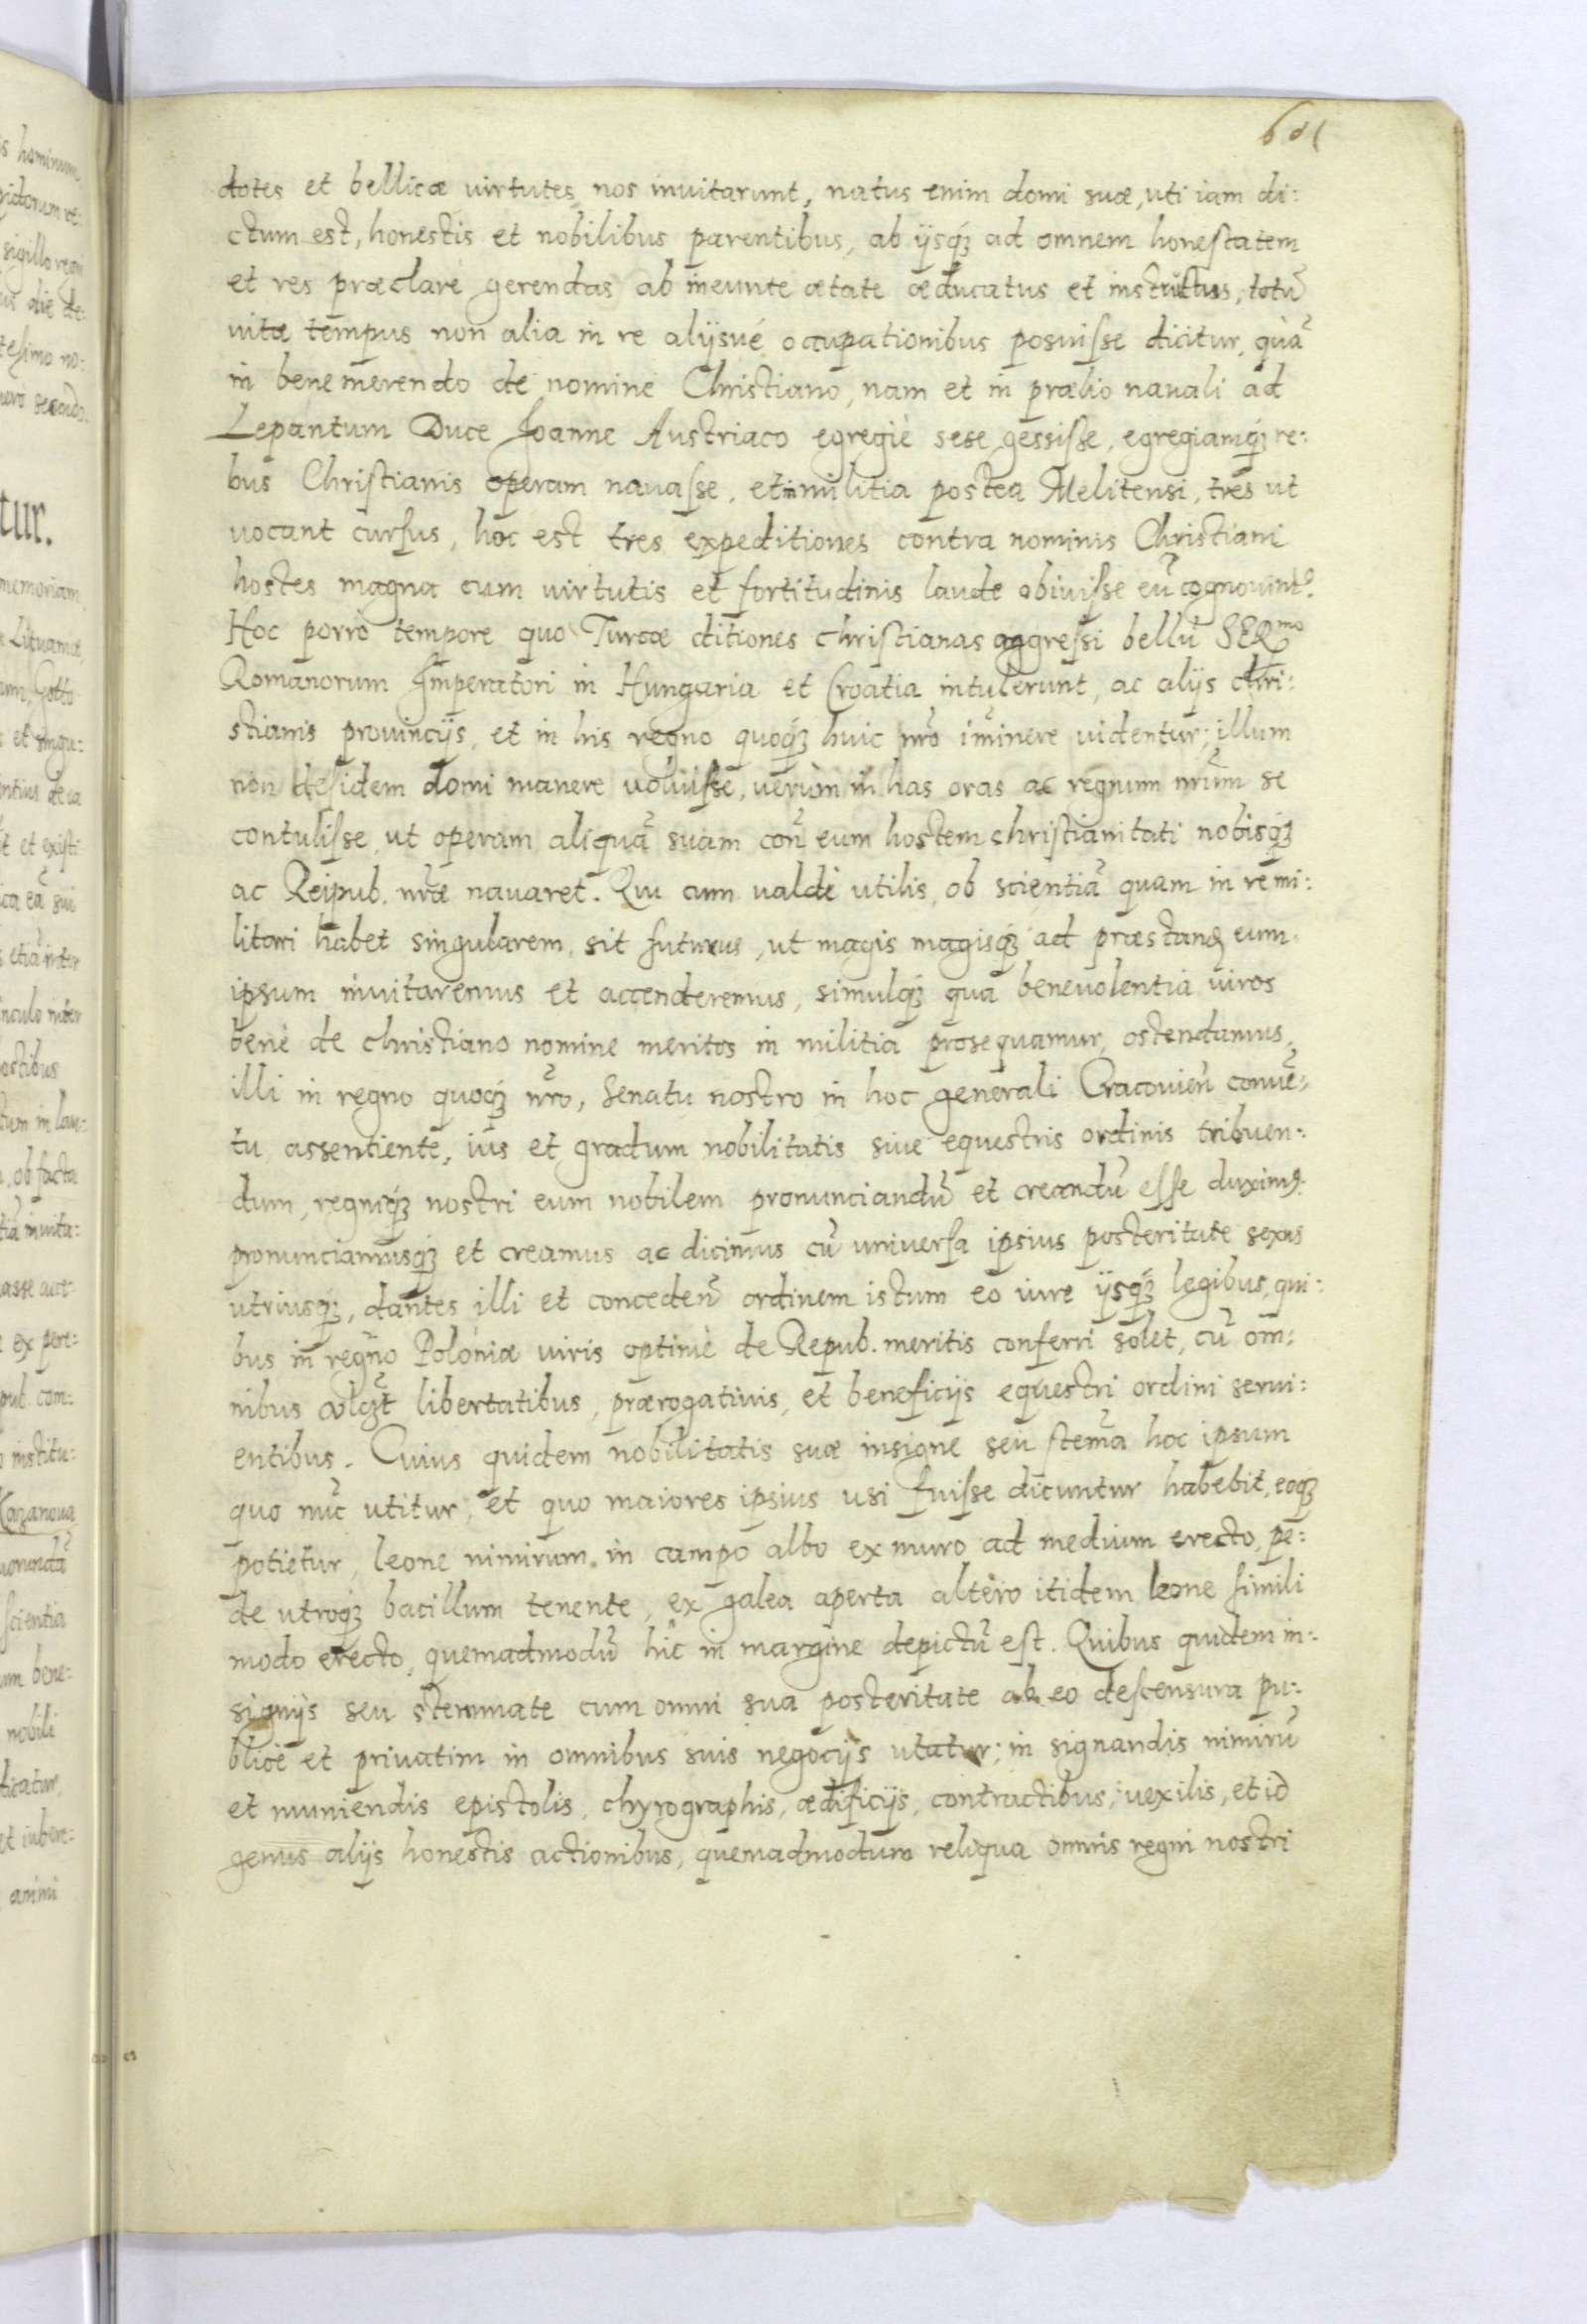 601
dotes et bellicæ virtutes nos inuitarunt, natus enim domi suæ, uti iam di:
ctum est, honestis et nobilibus parentibus, ab ijsq́₃ ad omnem honestatem
et res præclarè gerendas ab ineunte ætate æducatus et instructus, totũ
uitæ tempus non alia in re alijsué occupationibus posuisse dicitur, quã
in bene merendo de nomine Christiano, nam et in prælio nauali ad
Lepantum Duce Joanne Austriaco egregiè sese gessisse, egregiamq́₃ re:
bus Christianis operam nauasse, et in militia postea Melitensi, tres ut
uocant cursus, hoc est tres expeditiones contra nominis Christiani
hostes magna cum virtutis et fortitudinis laude obiuisse eũ
Hoc porrò tempore quo Turcæ ditiones christianas aggressi bellũ SERmo
Romanorum Imperatori in Hungaria et Croatia intulerunt, ac alijs chri:
stianis prouincijs, et in his regno quoq́₃ huic nr̃o im̃inere uidentur; illum
non desidem domi manere uoluisse, uerùm in has oras ac regnum nr̃um se
contulisse, ut operam aliquã suam coñ eum hostem christianitati nobisq́₃
ac Reipub. nr̃æ nauaret. Qui cum ualdè utilis, ob scientiã quam in re mi:
litari habet singularem, sit futurus, ut magis magisq́₃ ad præstand eum
ipsum inuitaremus et accenderemus, simulq́₃ qua beneuolentia uiros
benè de christiano nomine meritos in militia prosequamur, ostendamus,
illi in regno quoq́₃ nr̃o, Senatu nostro in hoc generali Cracouieñ conuẽ:
tu assentiente, ius et gradum nobilitatis siue equestris ordinis tribuen:
dum, regniq́₃ nostri eum nobilem pronunciandũ et creandũ esse duximꝰ.
pronunciamusq́₃ et creamus ac dicimus cũ uniuersa ipsius posteritate sexus
utriusq́₃, dantes illi et concedeñ ordinem istum eo iure ijsq́₃ legibus, qui:
bus in regno Poloniæ uiris optimè de Repub. meritis conferri solet, cũ om:
nibus libertatibus, prærogatiuis, et beneficijs equestri ordini serui:
entibus. Cuius quidem nobilitatis suæ insigne seu stem̃a hoc ipsum
quo nũc utitur, et quo maiores ipsius usi fuisse dicuntur habebit, eoq́₃
potietur, leone nimirum in campo albo ex muro ad medium erecto, pe:
de utroq́₃ bacillum tenente, ex galea aperta altero itidem leone simili
modo erecto, quemadmodũ hîc in margine depictũ est. Quibus quidem in:
signijs seu stemmate cum omni sua posteritate ab eo descensura pu:
blicè et priuatim in omnibus suis negocijs utatur; in signandis nimirũ
et muniendis epistolis, chyrographis, ædificijs, contractibus, uexilis, et id
genus alijs honestis actionibus, quemadmodum reliqua omnis regni nostri